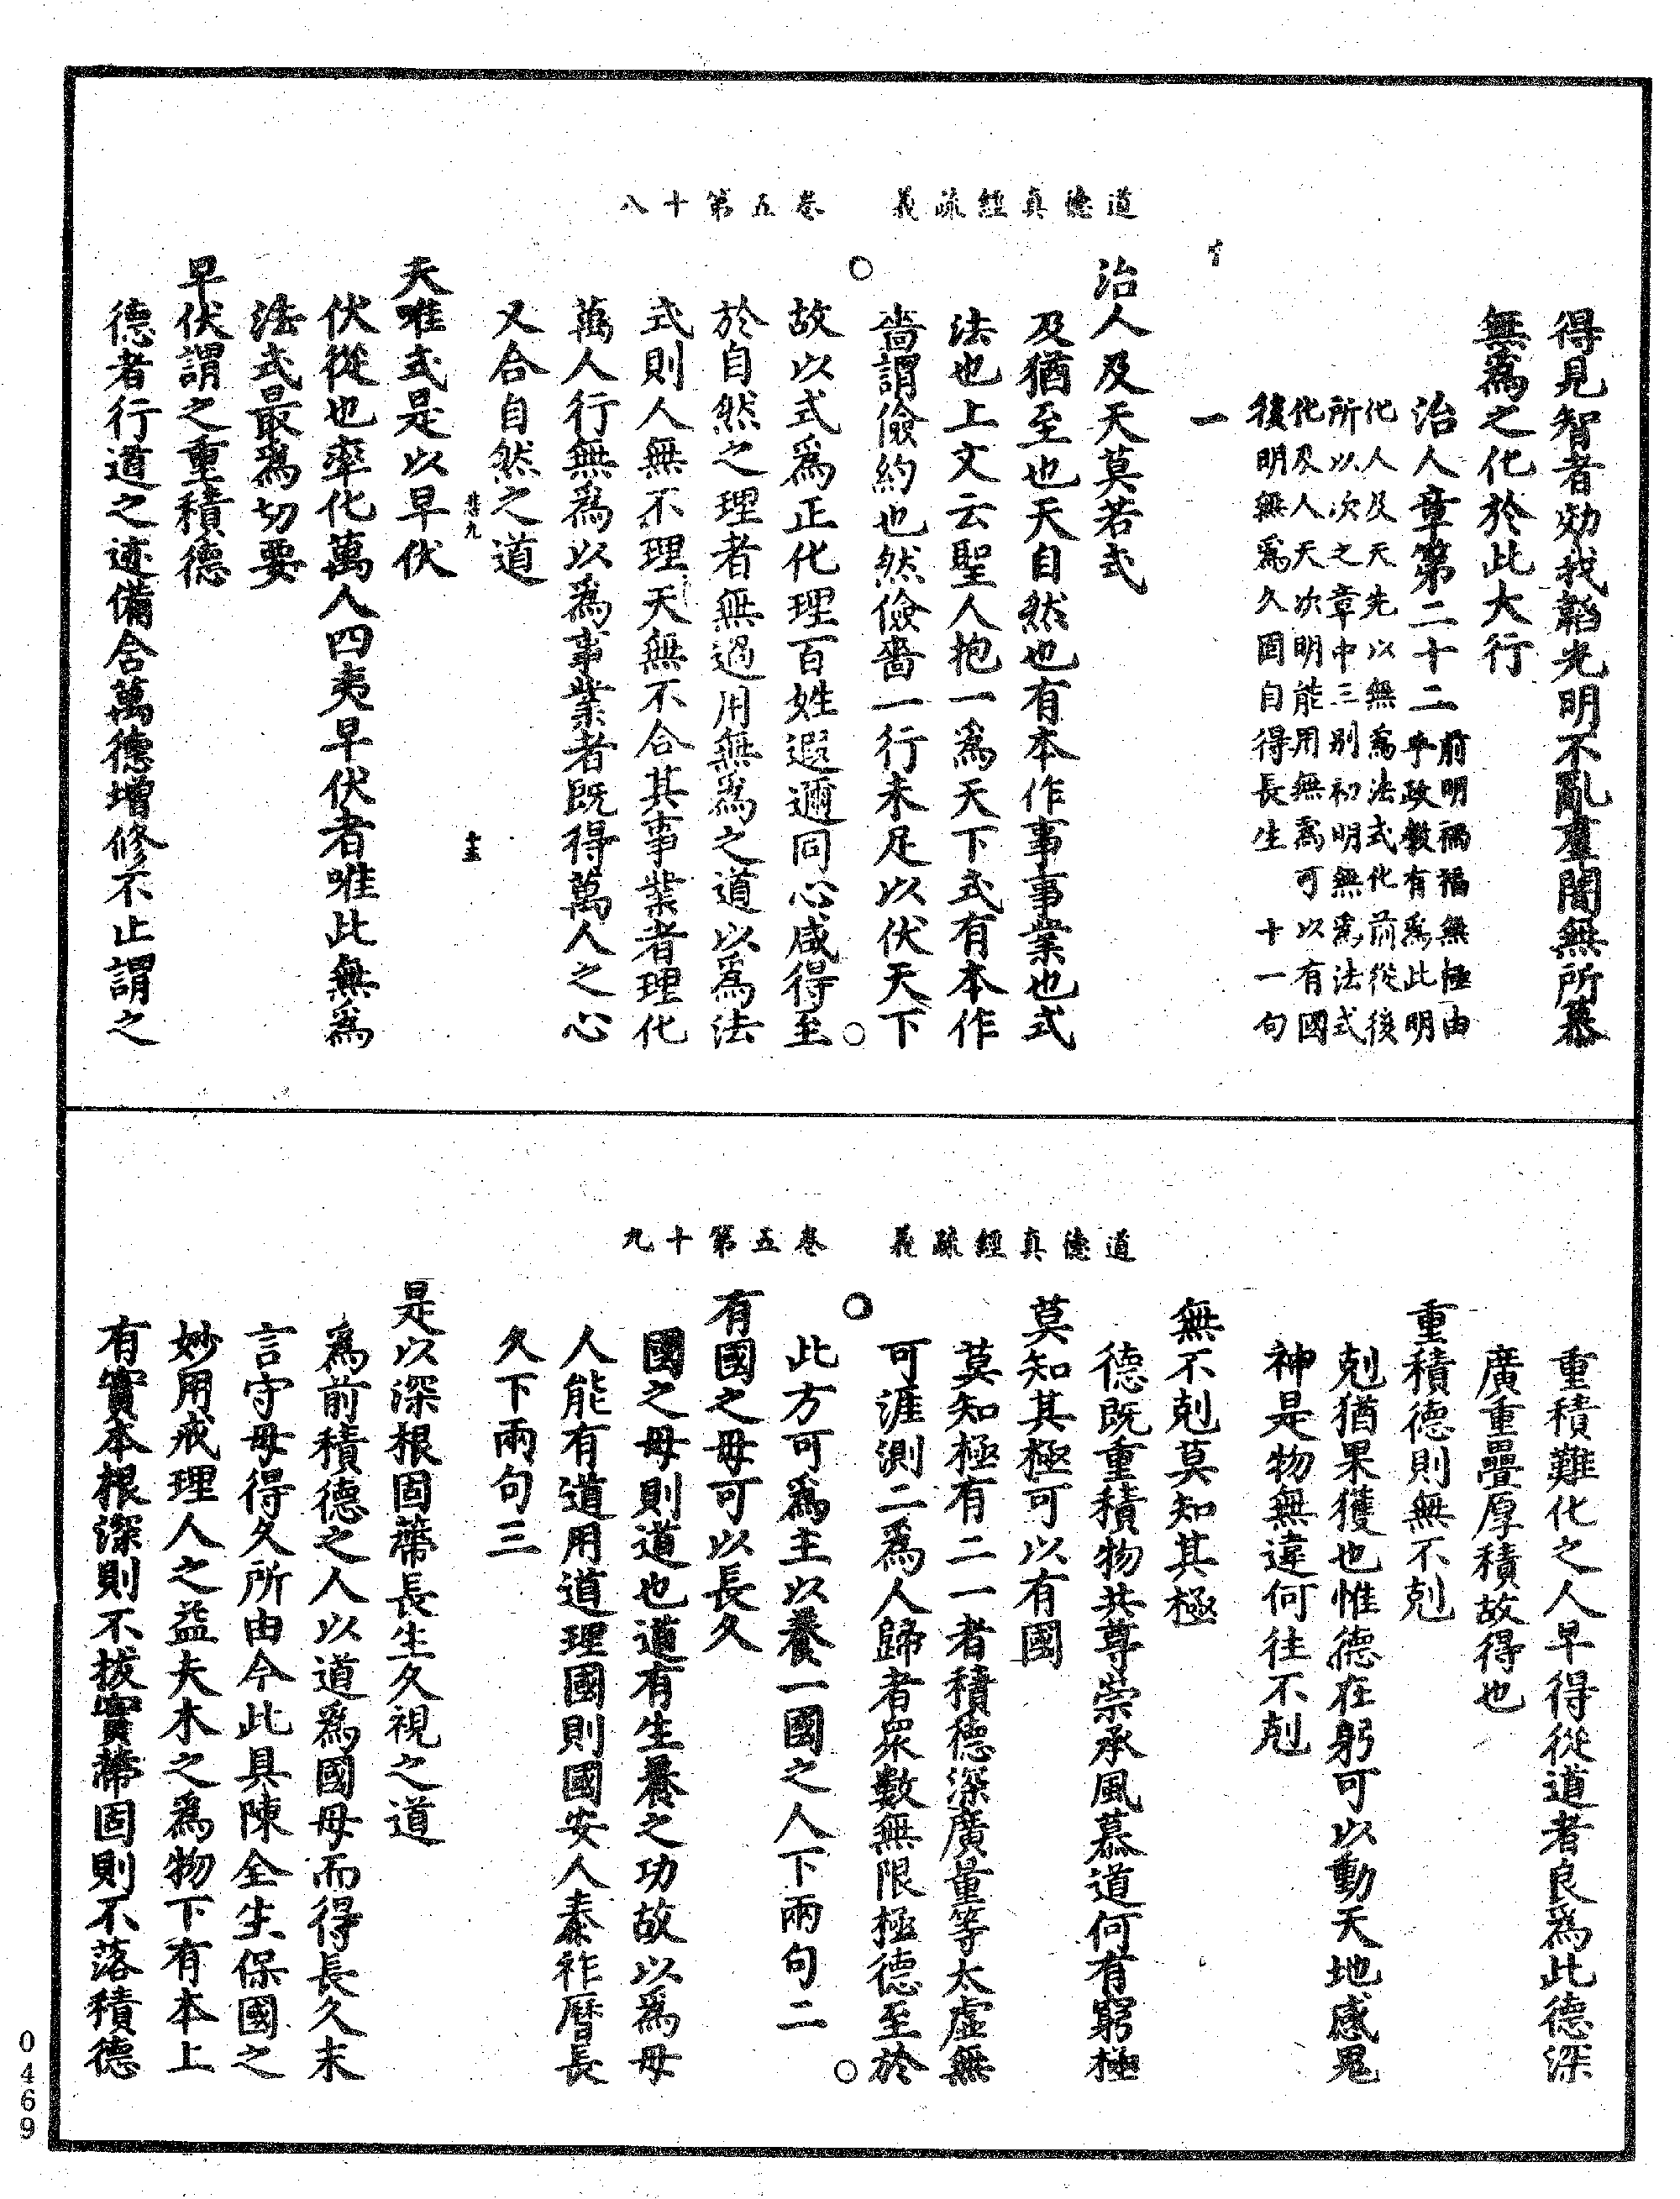 道德真經疏義　卷五第十八
得見智者効我韜光明不亂羣闇無所慕
無爲之化於此大行
治人章第二十二
前明禍福無極由
乎政教有爲此明
化人及天先以無爲法式化前從後
所以次之章中三別初明無爲法式
化及人天次明能用無爲可以有國
後明無爲久固自得長生　十一句
一
治人及天莫若式
及猶至也天自然也有本作事事業也式
法也上文云聖人抱一爲天下式有本作
嗇謂儉約也然儉嗇一行未足以伏天下
故以式爲正化理百姓遐邇同心咸得至
於自然之理者無過用無爲之道以爲法
式則人無不理天無不合其事業者理化
萬人行無爲以爲事業者既得萬人之心
又合自然之道
夫唯式是以早伏
伏從也率化萬人四夷早伏者唯此無爲
法式最爲切要
早伏謂之重積德
德者行道之迹備含萬德增修不止謂之
道德真經疏義　卷五第十九
重積難化之人早得從道者良爲此德深
廣重疊厚積故得也
重積德則無不剋
剋猶果獲也惟德在躬可以動天地感鬼
神是物無違何往不剋
無不剋莫知其極
德既重積物共尊崇承風慕道何有窮極
莫知其極可以有國
莫知極有二一者積德深廣量等太虛無
可涯測二爲人歸者衆數無限極德至於
此方可爲主以養一國之人下兩句二
有國之母可以長久
國之母則道也道有生養之功故以爲母
人能有道用道理國則國安人泰祚曆長
久下兩句三
是以深根固蔕長生久視之道
爲前積德之人以道爲國母而得長久末
言守母得久所由今此具陳全生保國之
妙用戒理人之益夫木之爲物下有本上
有實本根深則不拔實蔕固則不落積德
0469